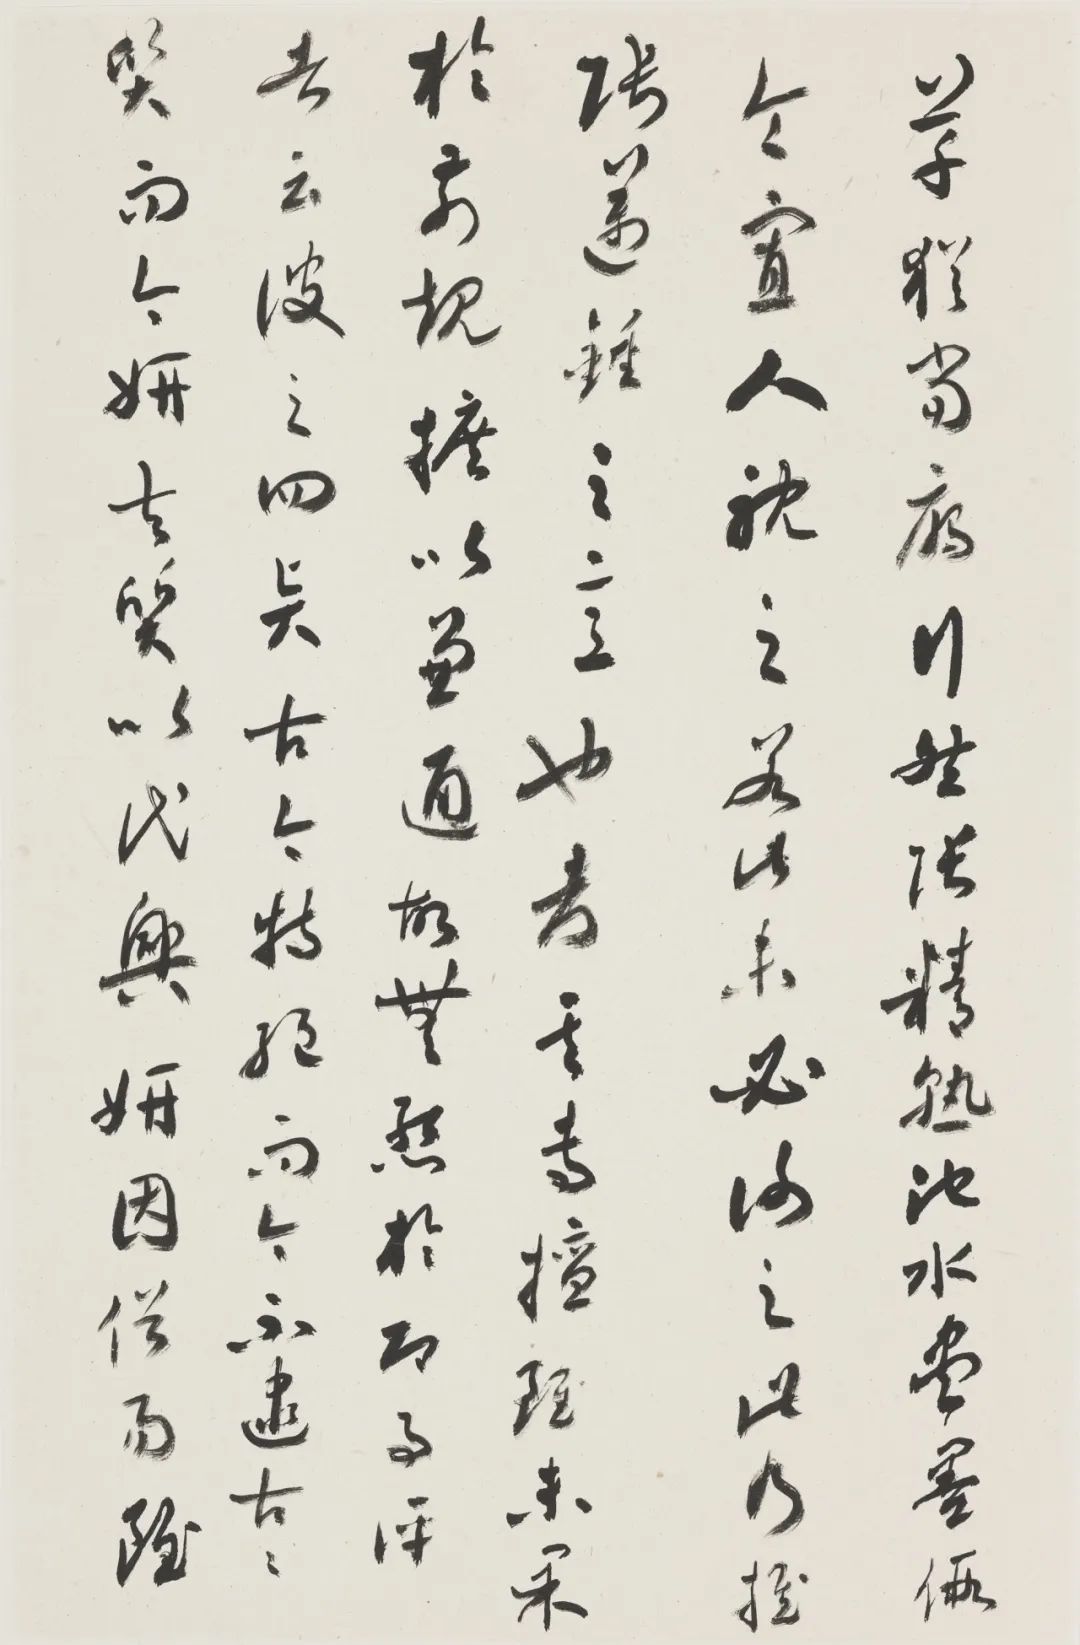 草猶當雁行然張精熟池水盡墨假
令寡人耽之若此未必謝之此乃推
張邁鍾之意也考其專擅雖未果
於前規摭以兼通故無慙於即事評
者云彼之四賢古今特絕而今不逮古〻
質而今妍夫質以代興妍因俗易雖